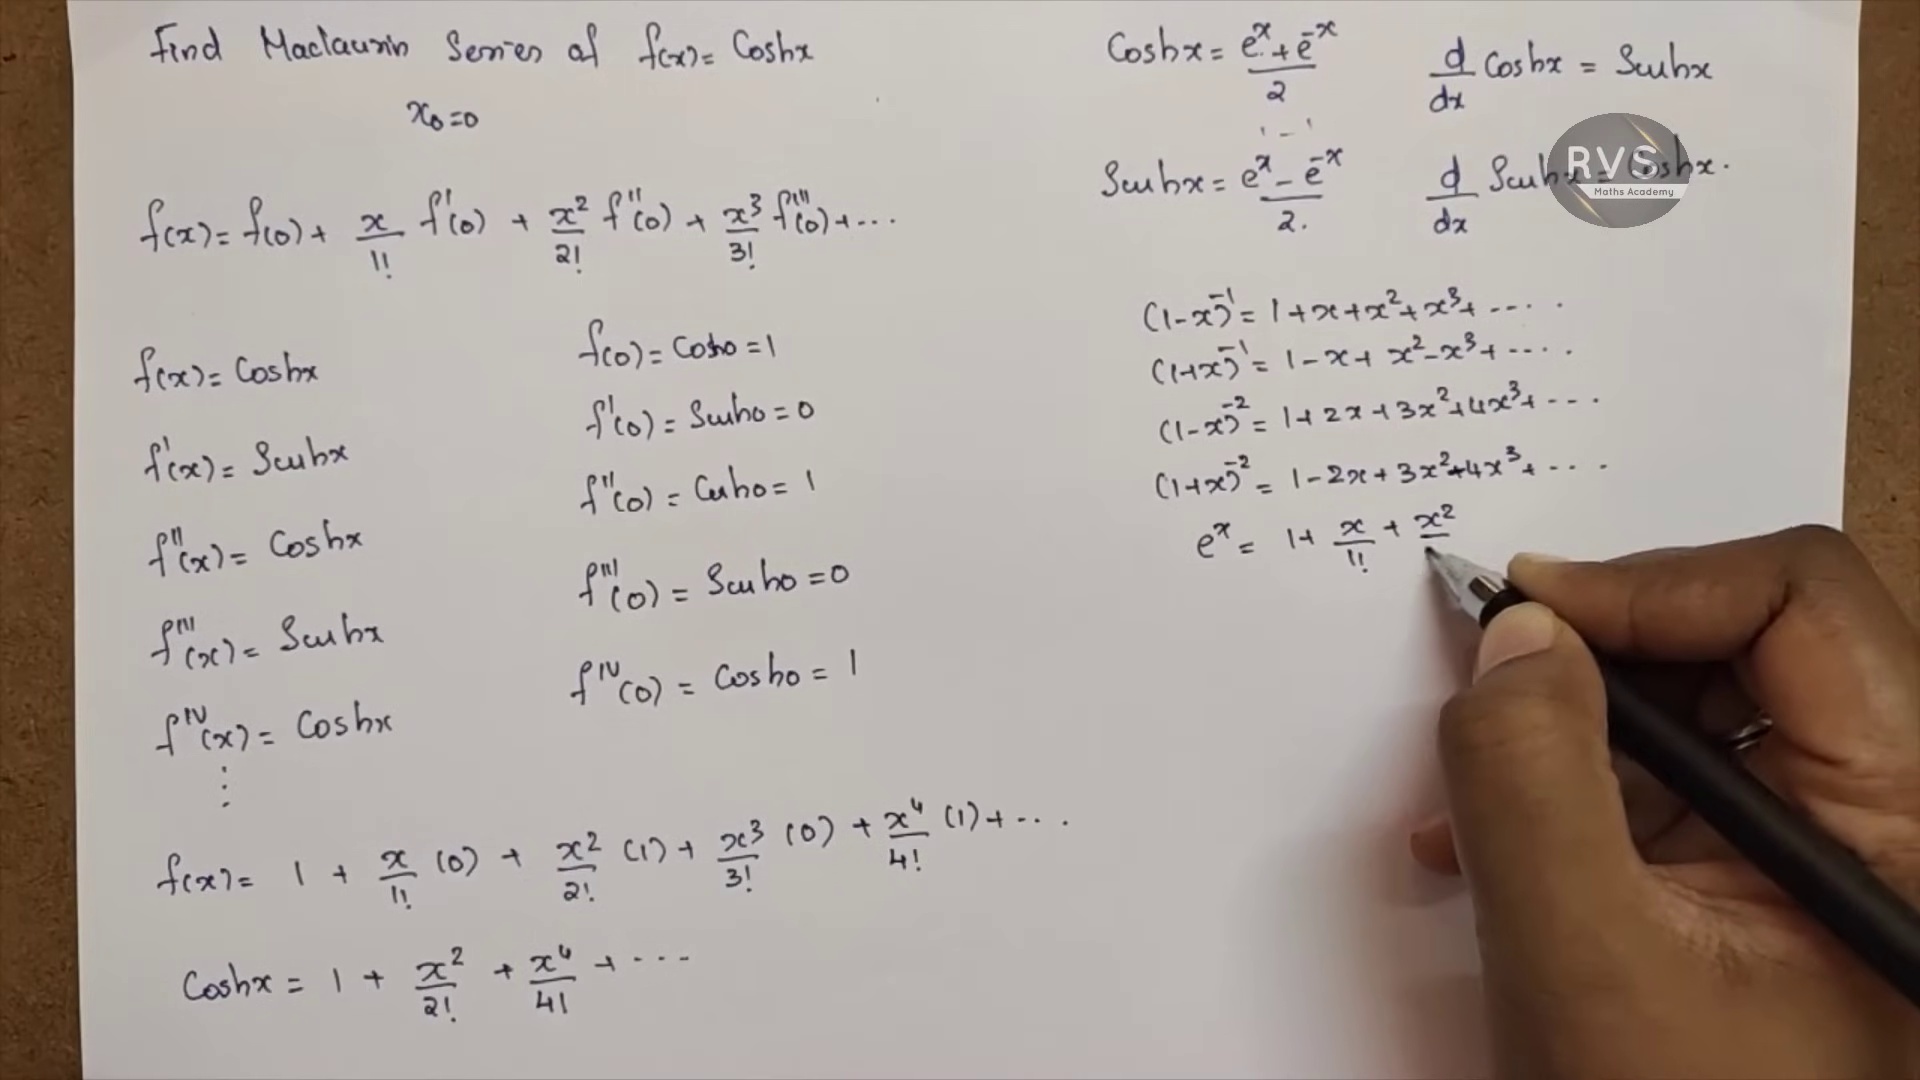 Find Maclaurin Series of f(x) = Coshx
x₀=0
f(x) = f(0) + x/1! f'(0) + x²/2! f''(0) + x³/3! f'''(0) + ...
f(x) = Coshx
f(0) = Cosh0 = 1
f'(x) = Sinhx
f'(0) = Sinh0 = 0
f''(x) = Coshx
f''(0) = Cosh0 = 1
f'''(x) = Sinhx
f'''(0) = Sinh0 = 0
f^IV(x) = Coshx
f^IV(0) = Cosh0 = 1
⋮
f(x) = 1 + x/1! (0) + x²/2! (1) + x³/3! (0) + x⁴/4! (1) + ...
Coshx = 1 + x²/2! + x⁴/4! + ...
Coshx = (eˣ + e⁻ˣ)/2
d/dx Coshx = Sinhx
Sinhx = (eˣ - e⁻ˣ)/2.
d/dx Sinhx = Coshx.
RVS
Maths Academy
(1-x)⁻¹ = 1+x+x²+x³+ ....
(1+x)⁻¹ = 1-x+x²-x³+ ....
(1-x)⁻² = 1+2x+3x²+4x³+ ...
(1+x)⁻² = 1-2x+3x²-4x³+ ...
eˣ = 1+ x/1! + x²